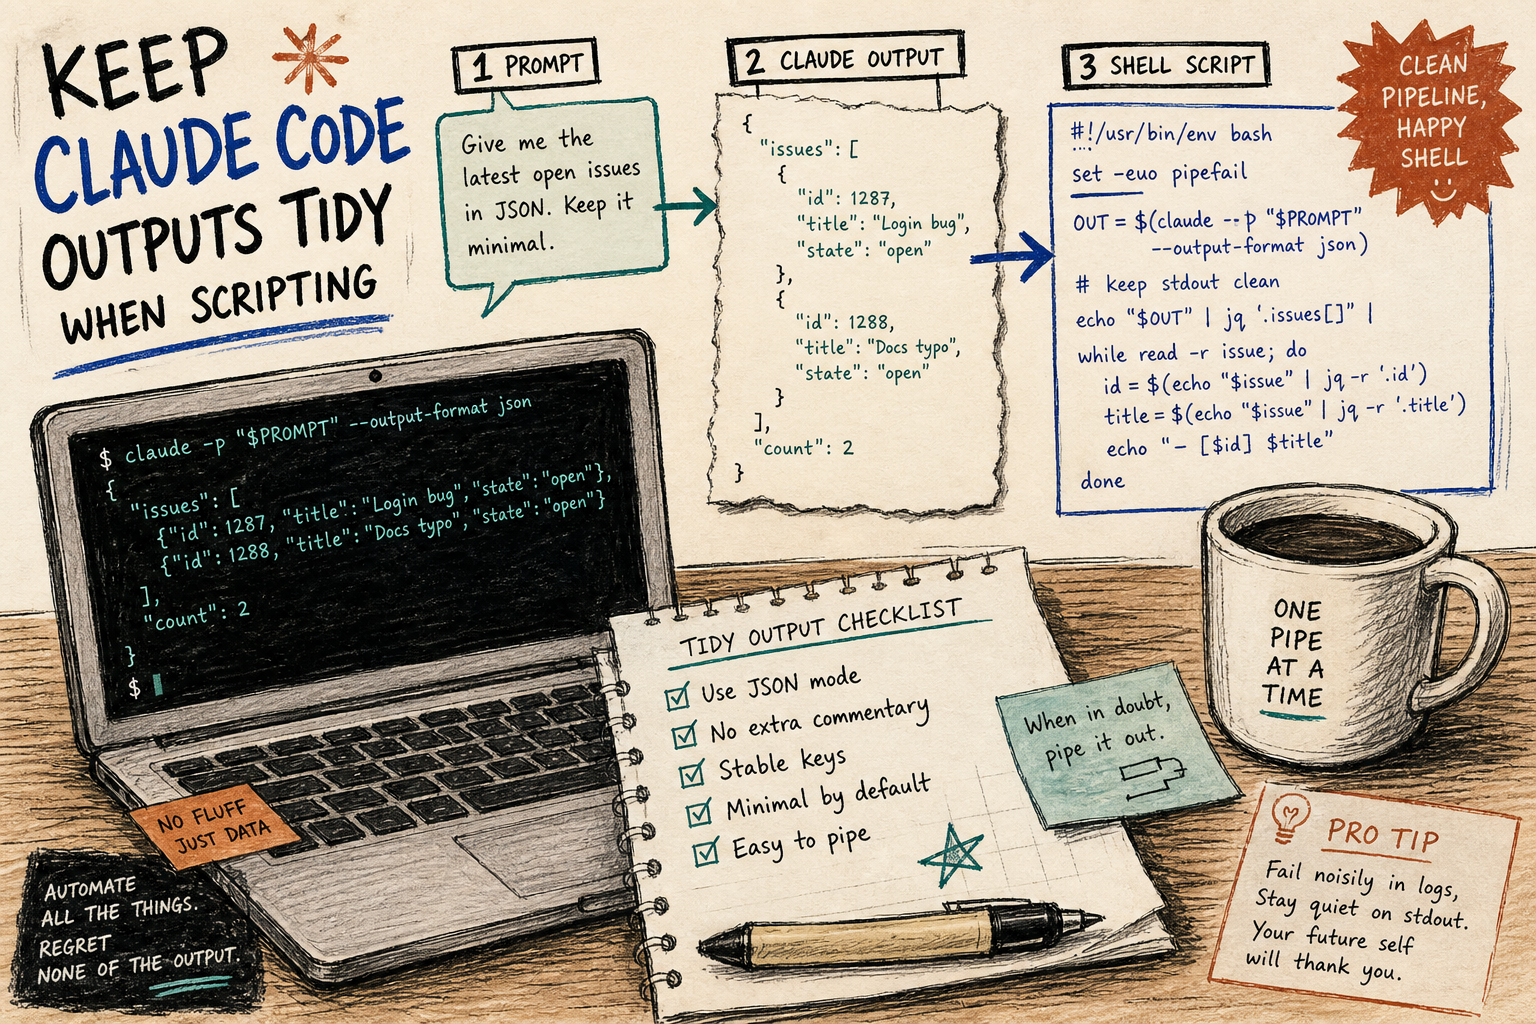 KEEP
CLAUDE CODE
OUTPUTS TIDY
WHEN SCRIPTING
1 PROMPT
Give me the
latest open issues
in JSON. Keep it
minimal.
2 CLAUDE OUTPUT
{
"issues": [
{
"id": 1287,
"title": "Login bug",
"state": "open"
},
{
"id": 1288,
"title": "Docs typo",
"state": "open"
}
],
"count": 2
}
3 SHELL SCRIPT
#!/usr/bin/env bash
set -euo pipefail
OUT = $(claude --p "$PROMPT"
--output-format json)
# keep stdout clean
echo "$OUT" | jq '.issues[]" |
while read -r issue; do
id = $(echo "$issue" | jq -r '.id')
title = $(echo "$issue" | jq -r '.title')
echo "- [$id] $title"
done
CLEAN
PIPELINE,
HAPPY
SHELL
$ claude -p "$PROMPT" --output-format json
{
"issues": [
{"id": 1287, "title": "Login bug", "state": "open"},
{"id": 1288, "title": "Docs typo", "state": "open"}
],
"count": 2
}
$
TIDY OUTPUT CHECKLIST
Use JSON mode
No extra commentary
Stable keys
Minimal by default
Easy to pipe
When in doubt,
pipe it out.
ONE
PIPE
AT A
TIME
NO FLUFF
JUST DATA
AUTOMATE
ALL THE THINGS.
REGRET
NONE OF THE OUTPUT.
PRO TIP
Fail noisily in logs,
Stay quiet on stdout.
Your future self
will thank you.